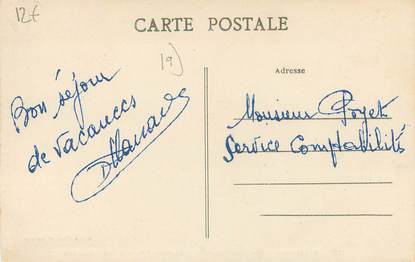 12€
CARTE POSTALE
19)
Adresse
Bon séjour
de vacances
Monsieur Poyet
Service Comptabilité